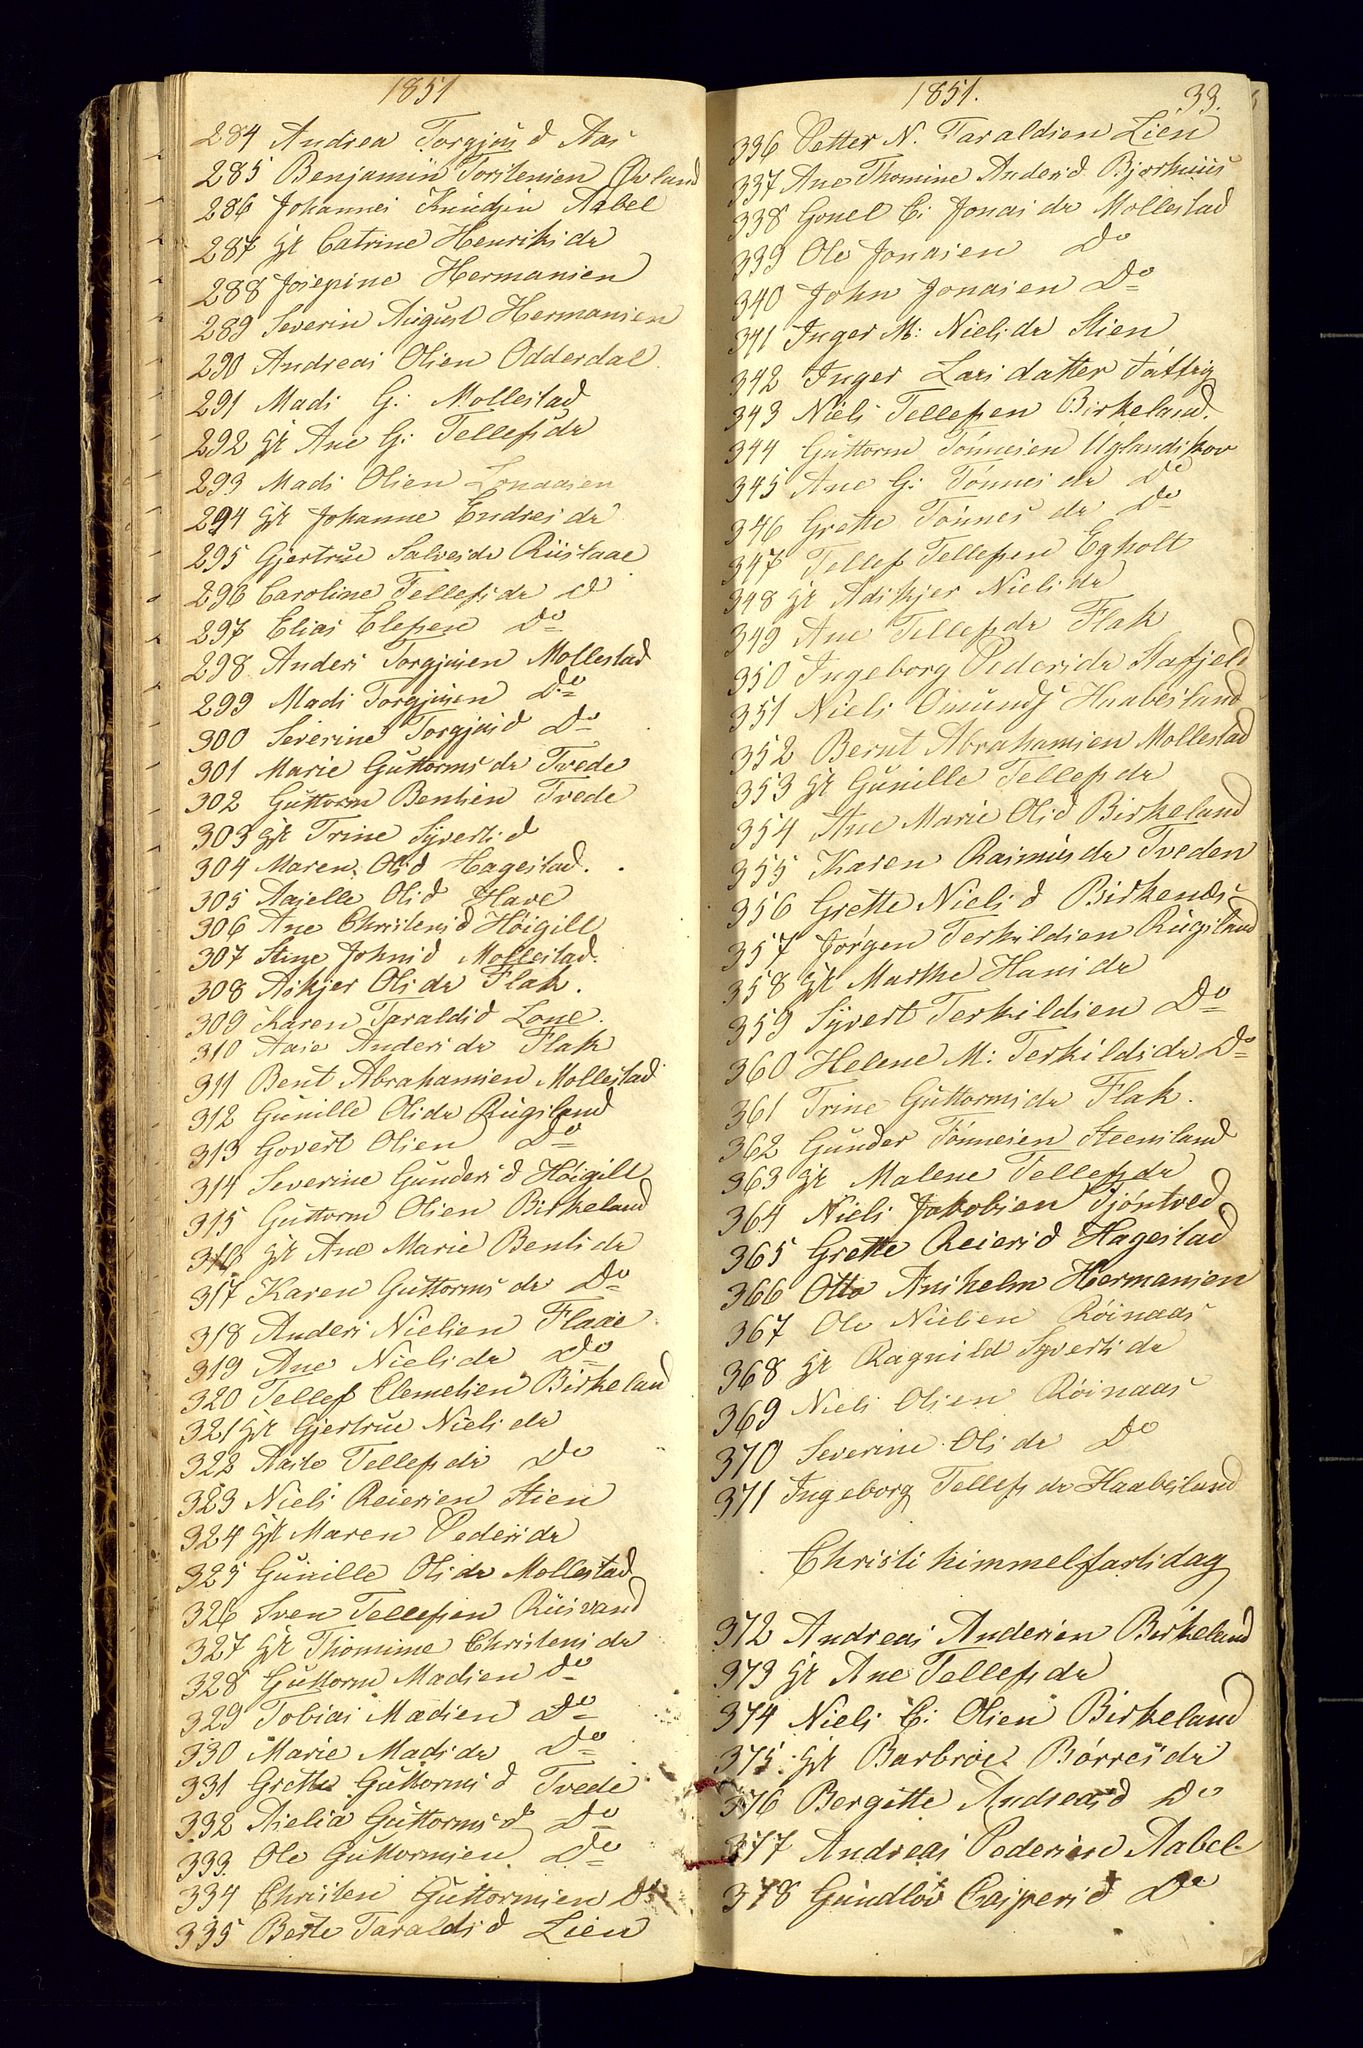 1851
284 Andrea Torgjusd Aas
285 Benjamin Torstensen Øvland
286 Johannes Knudsen Aabel
287 Gt Catrine Henriksdr
288 Josepine Hermansen
289 Severin August Hermansen
290 Andreas Olsen Odderdal
291 Mads G: Mollestad
292 Gt Ane G: Tellefsdr
293 Mads Olsen Lonaasen
294 Gt Johanne Endresdr
295 Gjertrue Salvesdr Riislaae
296 Caroline Tellefsdr d
297 Elias Elefsen Do
298 Anders Torgjusen Mollestad
299 Mads Torgjusen Do
300 Severine Torgjusd Do
301 Marie Guttormsdr Tvede
302 Guttorm Bentsen Tvede
303 Gt Trine Syvertsd
304 Maren Olsd Hagestad.
305 Aaselle Olsd Have
306 Ane Christensd Høigilt
307 Stine Johnsd Mollestad.
308 Askjer Olsdr Flak.
309 Karen Taraldsd Lone.
310 Aase Andersdr Flak
311 Bent Abrahamsen Mollestad
312 Gunille Olsdr Rugsland
313 Govert Olsen Do
314 Severine Gundersd Høigilt
315 Guttorm Olsen Birkeland
316 Gt Ane Marie Bentsdr
317 Karen Guttormsdr Do
318 Anders Nielsen Flaae
319 Ane Nielsdr Do
320 Tellef Clemetsen Birkeland
321 Gt Gjertrue Nielsdr
322 Aaste Tellefsdr Do
323 Niels Reiersen Stien
324 Gt Maren Pedersdr
325 Gunille Olsdr Mollestad
326 Sven Tellefsen Riisvand
327 Gt Thomine Christensdr
328 Guttorm Madsen do
329 Tobias Madsen Do
330 Marie Madsdr Do
331 Grette Guttormsd Tvede
332 Aselia Guttormsd Do
333 Ole Guttormsen Do
334 Christen Guttormsen Do
335 Berte Taraldsd Lien
1851. 33.
336 Petter N. Taraldsen Lien
337 Ane Thomine Andersd Bjorkuus
338 Gonel C: Jonasdr Mollestad
339 Ole Jonasen Do
340 John Jonasen Do
341 Inger M: Nielsdr Stien
342 Inger Larsdatter Fattig
343 Niels Tellefsen Birkeland.
344 Guttorm Tønnesen Uglandskov
345 Ane G: Tønnesdr Do
346 Grette Tønnesdr Do
347 Tellef Tellefsen Egholt
348 Gt Adskjer Nielsdr
349 Ane Tellefsdr Flak
350 Ingeborg Pedersdr Stafjeld
351 Niels Omunds Haabesland
352 Bernt Abrahamsen Mollestad
353 Gt Gunille Tellefsdr
354 Ane Marie Olsd Birkeland
355 Karen Rasmusdr Tveden
356 Grette Nielsd Birkends
357 Jørgen Terkildsen Rugsland
358 Gt Marthe Hansdr
359 Syvert Terkildsen Do
360 Helene M: Terkildsdr Do
361 Trine Guttormsdr Flak.
362 Gunder Tønnesen Steensland
363 Gt Malene Tellefsdr
364 Niels Jakobsen Tjøntved
365 Grette Reiersd Hagestad
366 Otto Anshelm Hermansen
367 Ole Nielsen Røinaas
368 Gt Ragnild Syvertsdr
369 Niels Olsen Røinaas
370 Severine Olsdr Do
371 Ingeborg Tellefsdr Haabesland
Christi himmelfartsdag
372 Andreas Andersen Birkeland
373 Gt Ane Tellefsdr
374 Niels C: Olsen Birkeland
375 Gt Barbroe Børresdr
376 Bergitte Andreasd Do
377 Andreas Pedersen Aabel
378 Gundlov Caspersd Do